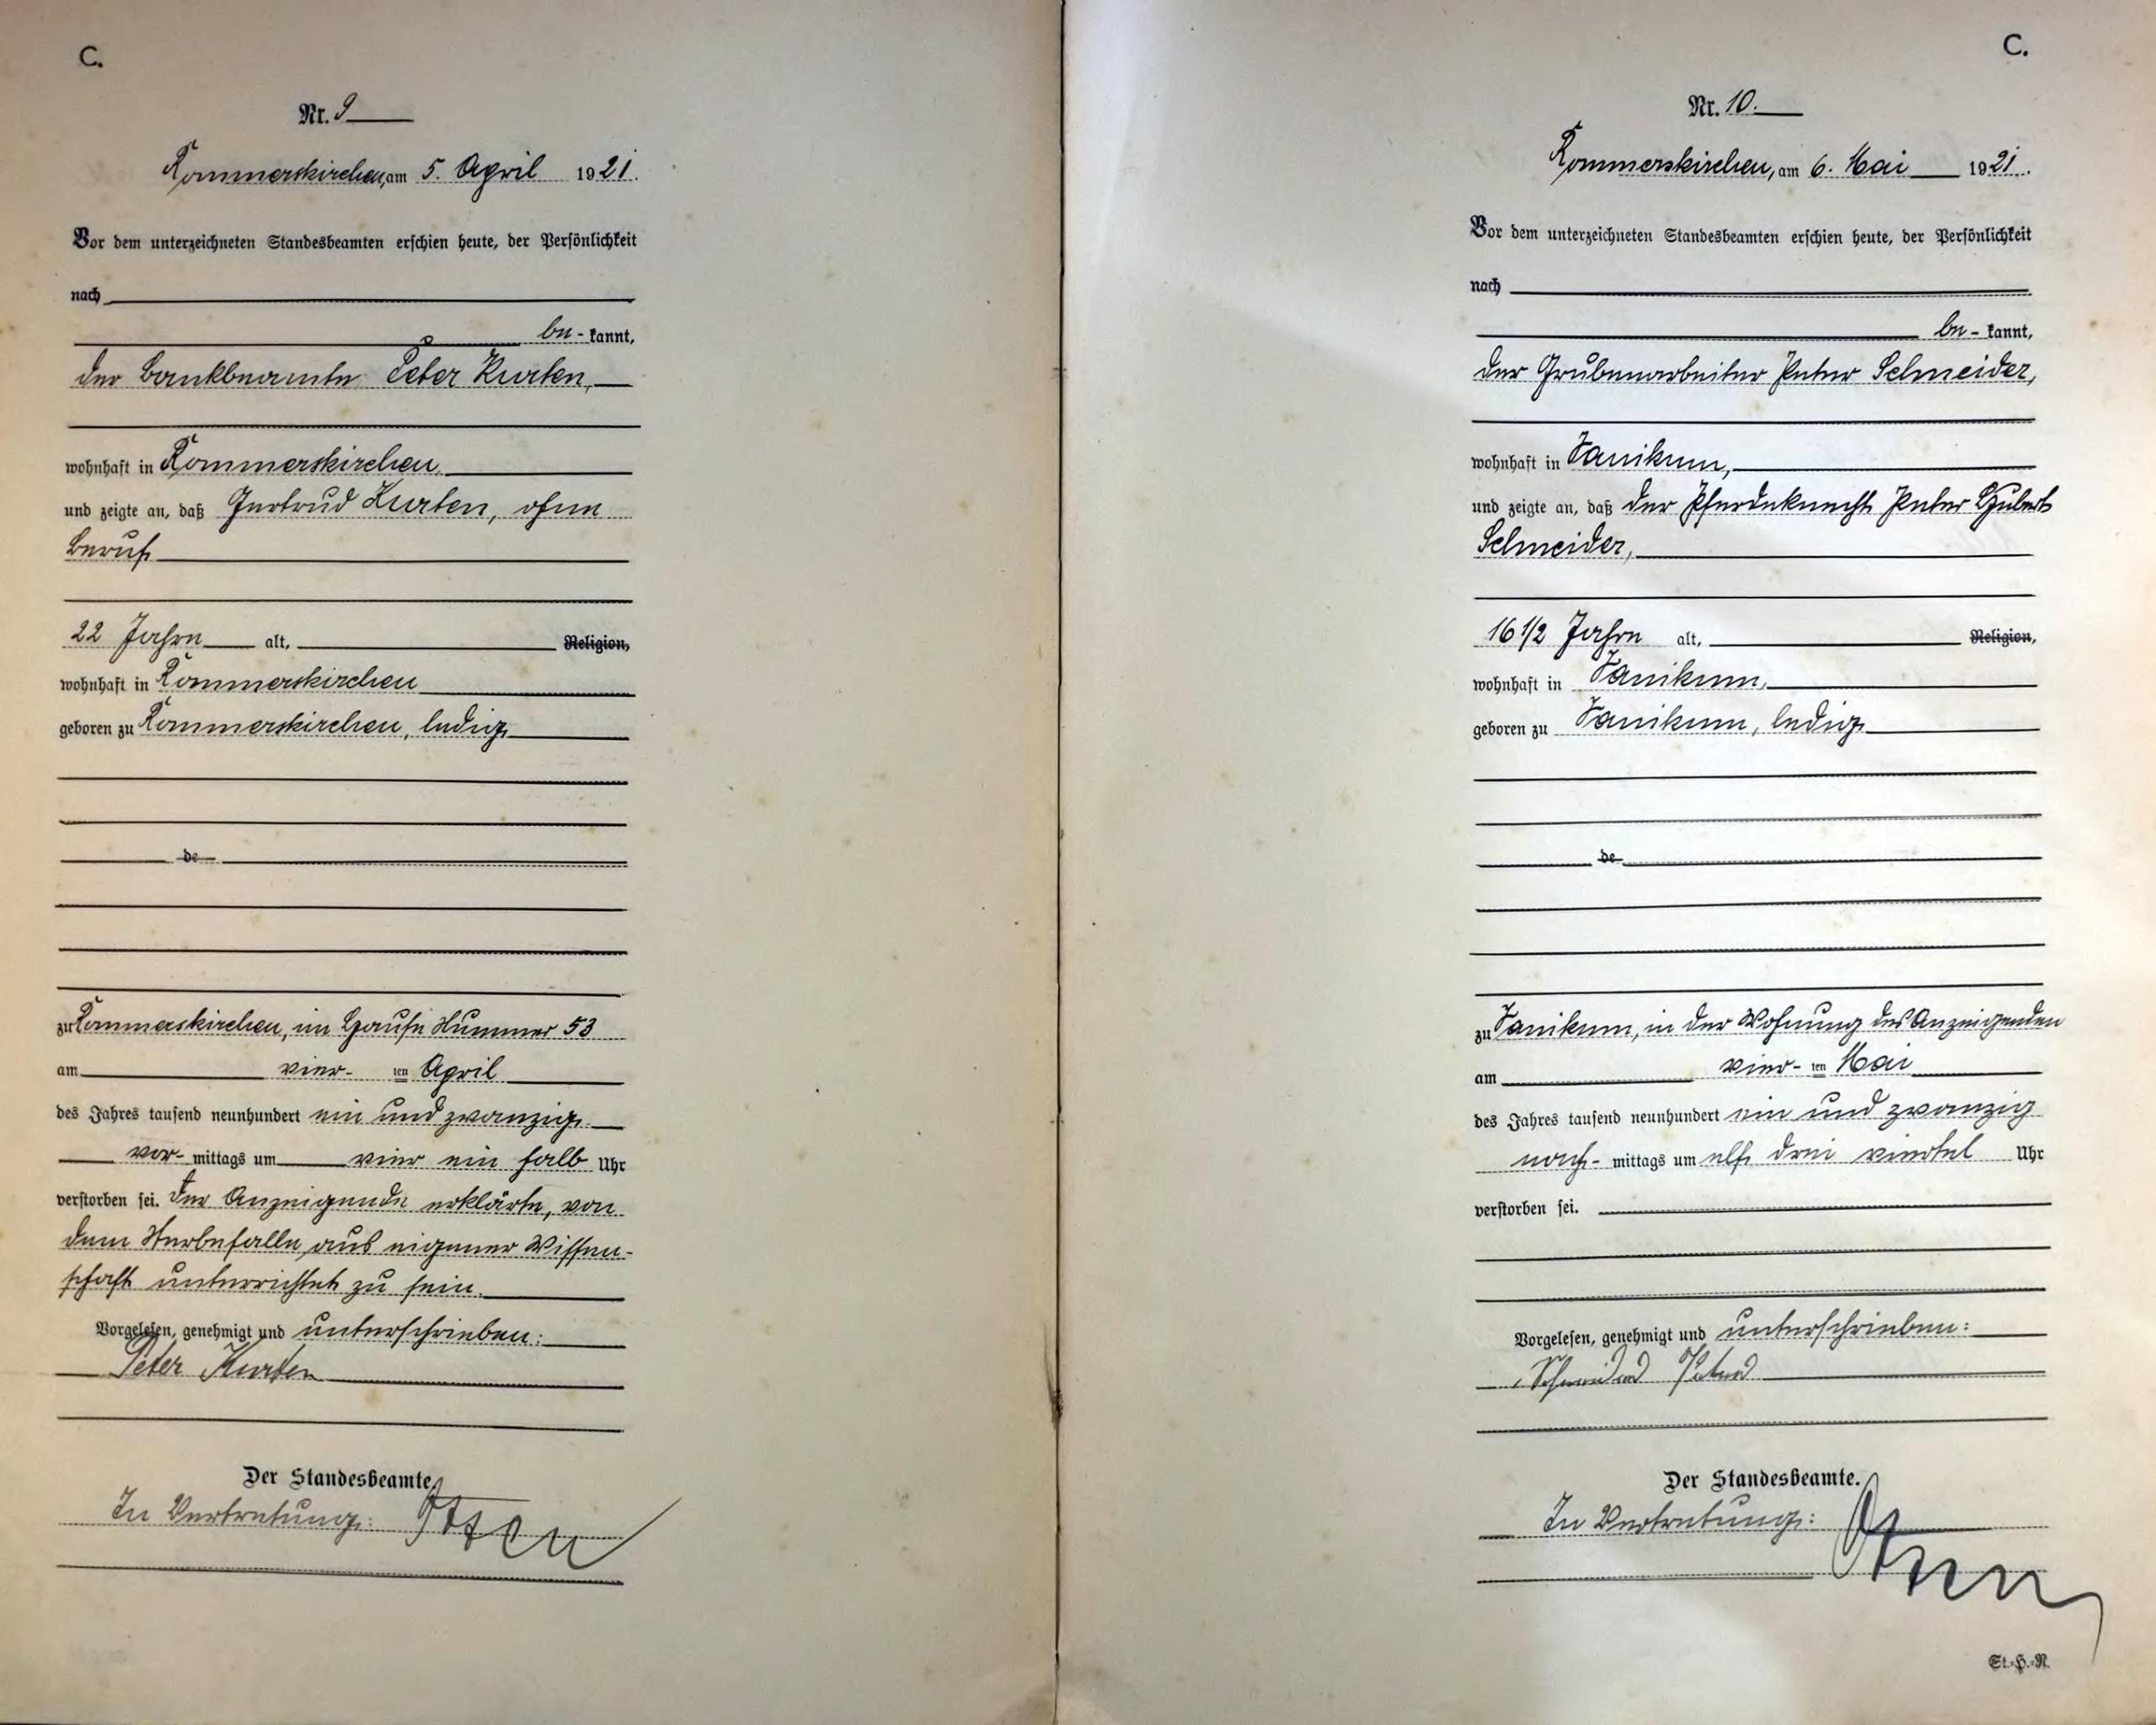 C.
Nr. 9
Rommerskirchen, am 5. April 1921.
Vor dem unterzeichneten Standesbeamten erschien heute, der Persönlichkeit
nach
be- kannt,
der Bankbeamte Peter Kurten,
wohnhaft in Rommerskirchen,
und zeigte an, daß Gertrud Kurten, ohne
Beruf
22 Jahre alt, Religion,
wohnhaft in Rommerskirchen
geboren zu Rommerskirchen, ledig
de
zu Rommerskirchen, im Hause Nummer 53
am vier- ten April
des Jahres tausend neunhundert ein und zwanzig
vor- mittags um vier ein halb Uhr
verstorben sei. Der Anzeigende erklärte, von
dem Sterbefalle aus eigener Wissen-
schaft unterrichtet zu sein.
Vorgelesen, genehmigt und unterschrieben:
Peter Kurten
Der Standesbeamte
In Vertretung:
C.
Nr. 10.
Rommerskirchen, am 6. Mai 1921.
Vor dem unterzeichneten Standesbeamten erschien heute, der Persönlichkeit
nach
be- kannt,
der Grubenarbeiter Peter Schneider,
wohnhaft in Vanikum,
und zeigte an, daß der Pferdeknecht Peter Hubert
Schneider,
16 1/2 Jahre alt, Religion,
wohnhaft in Vanikum,
geboren zu Vanikum, ledig
de
zu Vanikum, in der Wohnung des Anzeigenden
am vier- ten Mai
des Jahres tausend neunhundert ein und zwanzig
nach- mittags um elf drei viertel Uhr
verstorben sei.
Vorgelesen, genehmigt und unterschrieben:
Schneider Peter
Der Standesbeamte.
In Vertretung:
St.-H.-R.